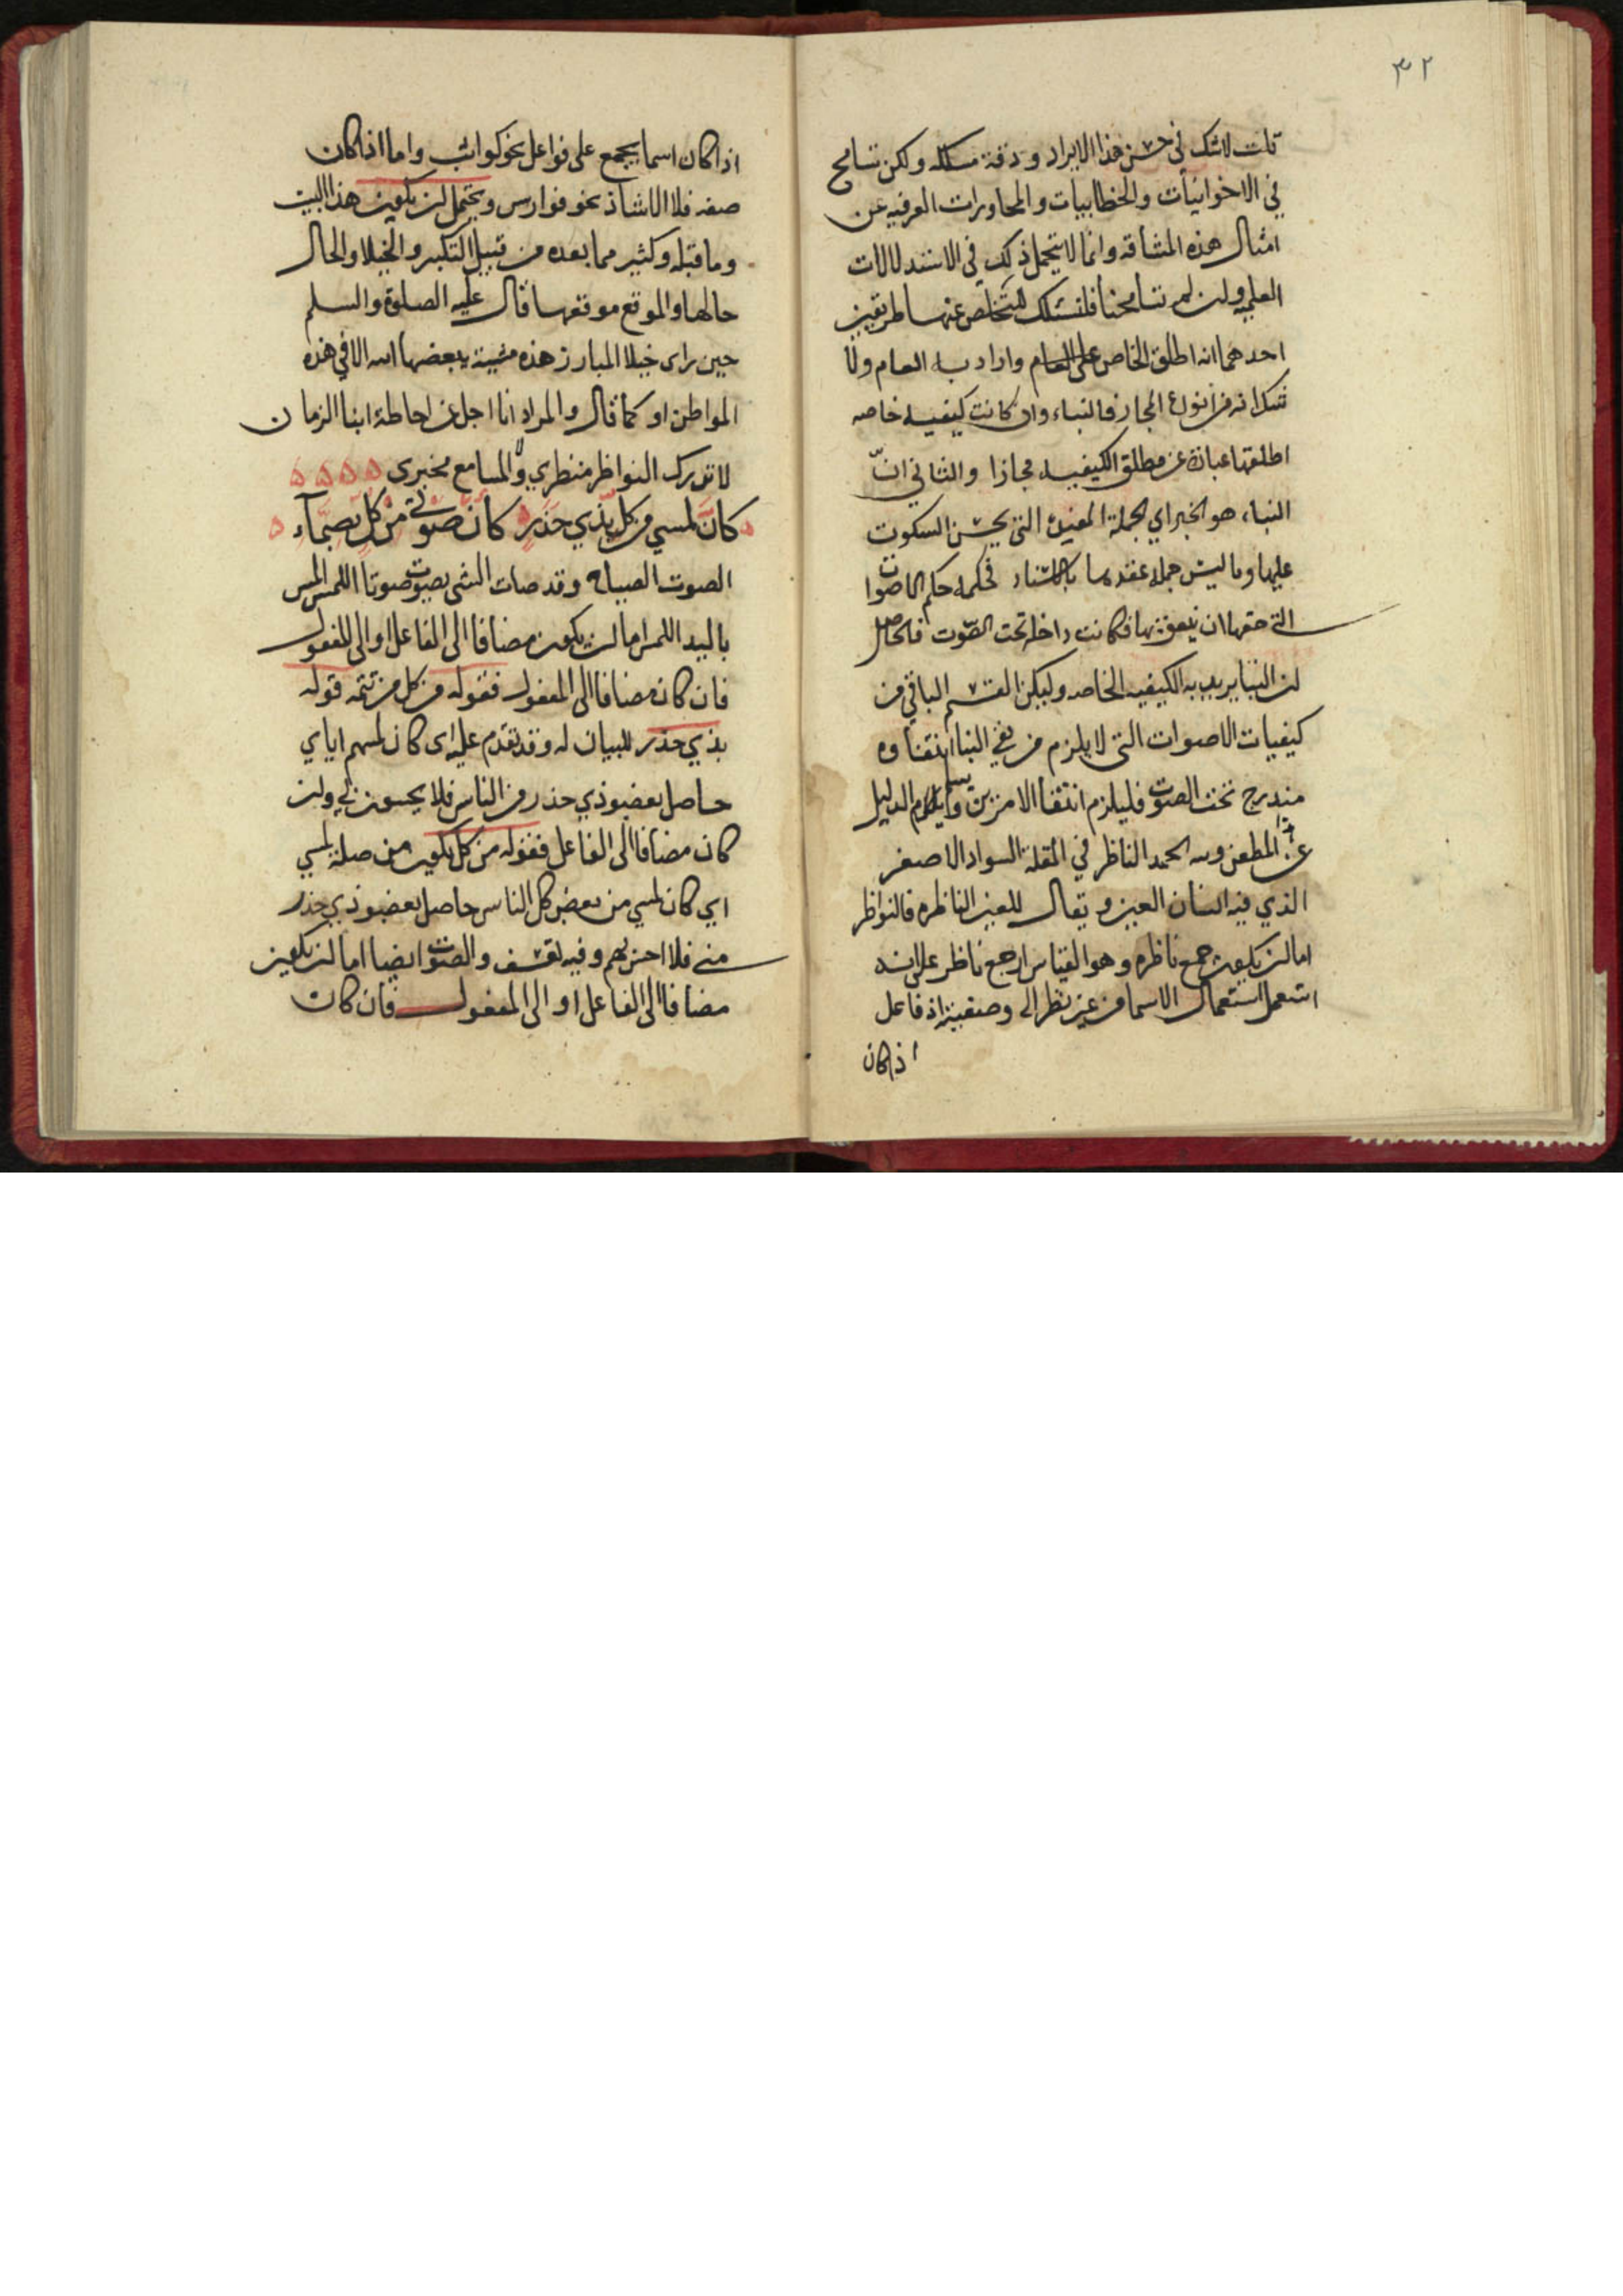 ٣٢
قلت لا شك في حسن هذا الايراد ودقة مسلكه ولكن نتسامح
في الاخوانيات والخطابيات والمحاورات العرفيه عن
امثال هذه المشاقة وانما لا يتحمل ذلك في الاستدلالات
العلميه ولن لم نتسامحنا فلنسلك للتخلص عنها طريقين
احدهما انه اطلق الخاص على العام واراد به العام ولا
شك انه من انواع المجاز فالنباء وان كانت كيفيه خاصه
اطلقها عبارة عن مطلق الكيفيه مجازا والثاني انّ
النباء هو الخبر اي الجملة المفيدة التي يحسن السكوت
عليها وما ليس جملة عقدها بالاسناد فحكمه حكم الاصوات
التي حقها ان ينعق بها فكانت داخلة تحت الصوت فالحاصل
لن النبا يريد به الكيفيه الخاصه وليكن القسم الباقي من
كيفيات الاصوات التي لا يلزم من نفي النبا انتفاوه
مندرج تحت الصوت فليلزم انتفا الامرين ويسلم الدليل
عن المطعن ولله الحمد الناظر في المقلة السواد الاصغر
الذي فيه انسان العين ويقال للعين الناظره فالنواظر
اما لن يكون جمع ناظره وهو القياس او جمع ناظر على انه
استعمل استعمال الاسما من غير نظر الى وصفيته اذ فاعل
اذا كان
اذا كان اسما يجمع على فواعل نحو كواثب واما اذا كان
صفه فلا الا شاذ نحو فوارس ويحتمل لن يكون هذا البيت
وما قبله وكثير مما بعده من قبيل التكبر والخيلا والحال
حالها والموقع موقعها قال عليه الصلوة والسلم
حين راى خيلا المبارز هذه مشية يبغضها الله الا في هذه
المواطن او كما قال والمراد انا اجل عن احاطة ابنا الزمان
لا تدرك النواظر منظري والمسامع مخبري
كانّ لمسي من كل بذي حذر كانّ صوتي من كل بصمّآء
الصوت الصياح وقد صات الشي يصوت صوتا اللمس المس
باليد اللمس اما لن يكون مضافا الى الفاعل او الى المفعول
فان كان مضافا الى المفعول فقوله من كل من تتمه قوله
بذي حذر للبيان له وقد تقدم عليه اى كان لمسهم اياي
حاصل بعضو ذي حذر من الناس فلا يحسون بي ولن
كان مضافا الى الفاعل فقوله من كل يكون من صلة لمسي
اي كان لمسي من بعض كل الناس حاصل بعضو ذي حذر
مني فلا احس بهم وفيه تعسف والصوت ايضا اما لن يكون
مضافا الى الفاعل او الى المفعول فان كان